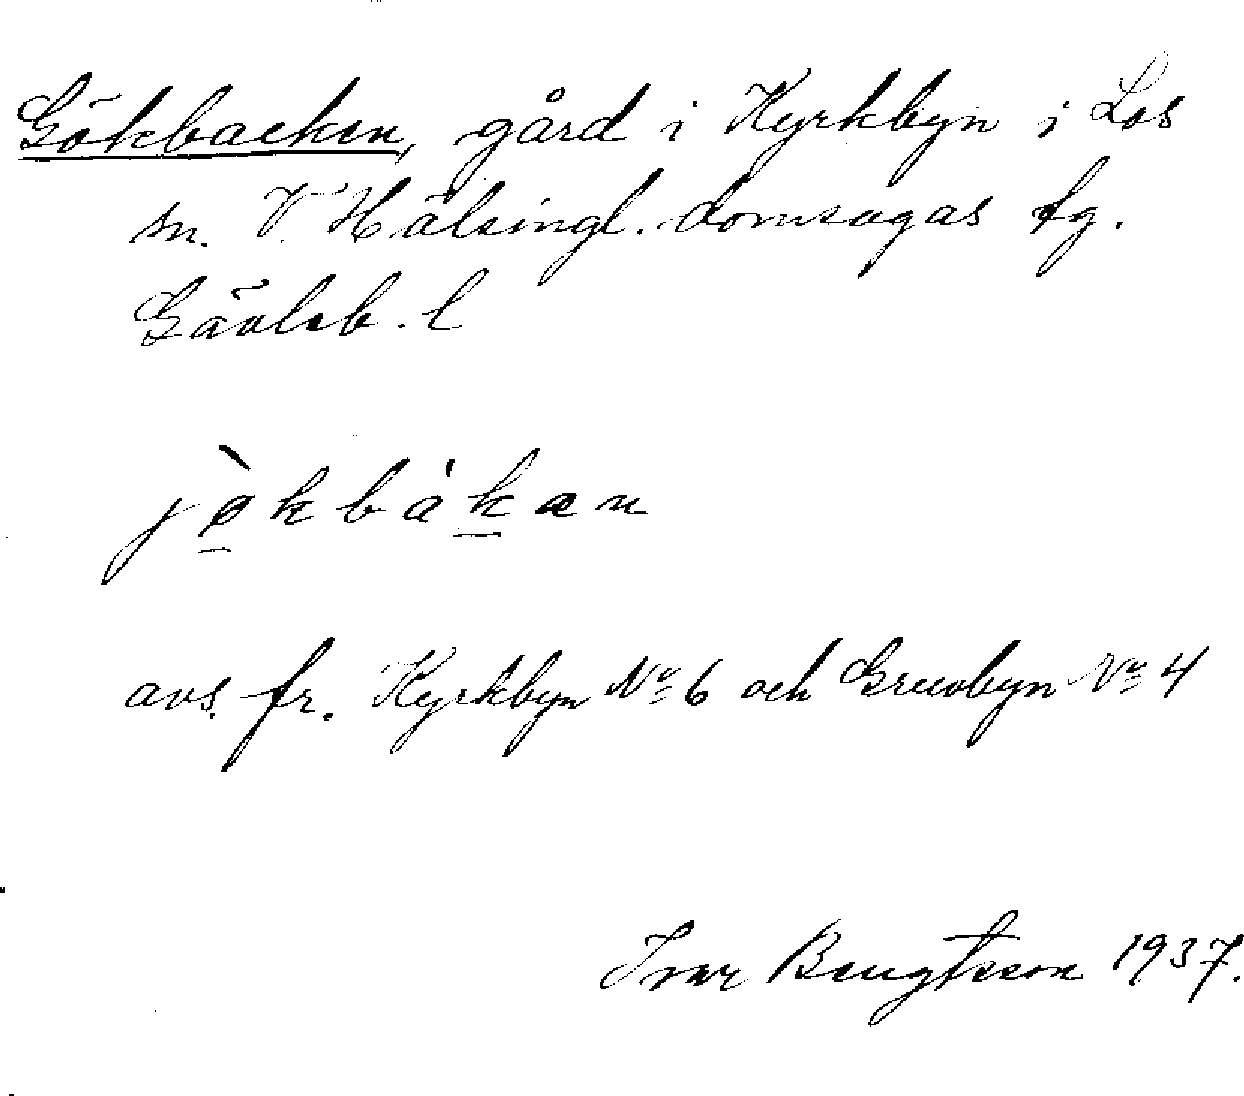 Gökbacken, gård i Kyrkbyn i Los
sn. V. Hälsingl. domsagas tg.
Gävleb. l
jø̀kbákæn
avs. fr. Kyrkbyn No 6 och Gruvbyn No 4
Ivar Bengtsson 1937.